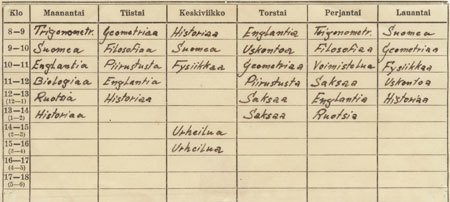 Klo Maanantai Tiistai Keskiviikko Torstai Perjantai Lauantai
8—9 Trigonometr. Geometriaa Historiaa Englantia Trigonometr. Suomea
9—10 Suomea Filosofiaa Suomea Uskontoa Filosofiaa Geometriaa
10—11 Englantia Piirustusta Fysiikkaa Geometriaa Voimistelua Fysiikkaa
11—12 Biologiaa Englantia Piirustusta Saksaa Uskontoa
12—13 (12—1) Ruotsia Historiaa Saksaa Englantia Historiaa
13—14 (1—2) Historiaa Saksaa Ruotsia
14—15 (2—3) Urheilua
15—16 (3—4) Urheilua
16—17 (4—5)
17—18 (5—6)